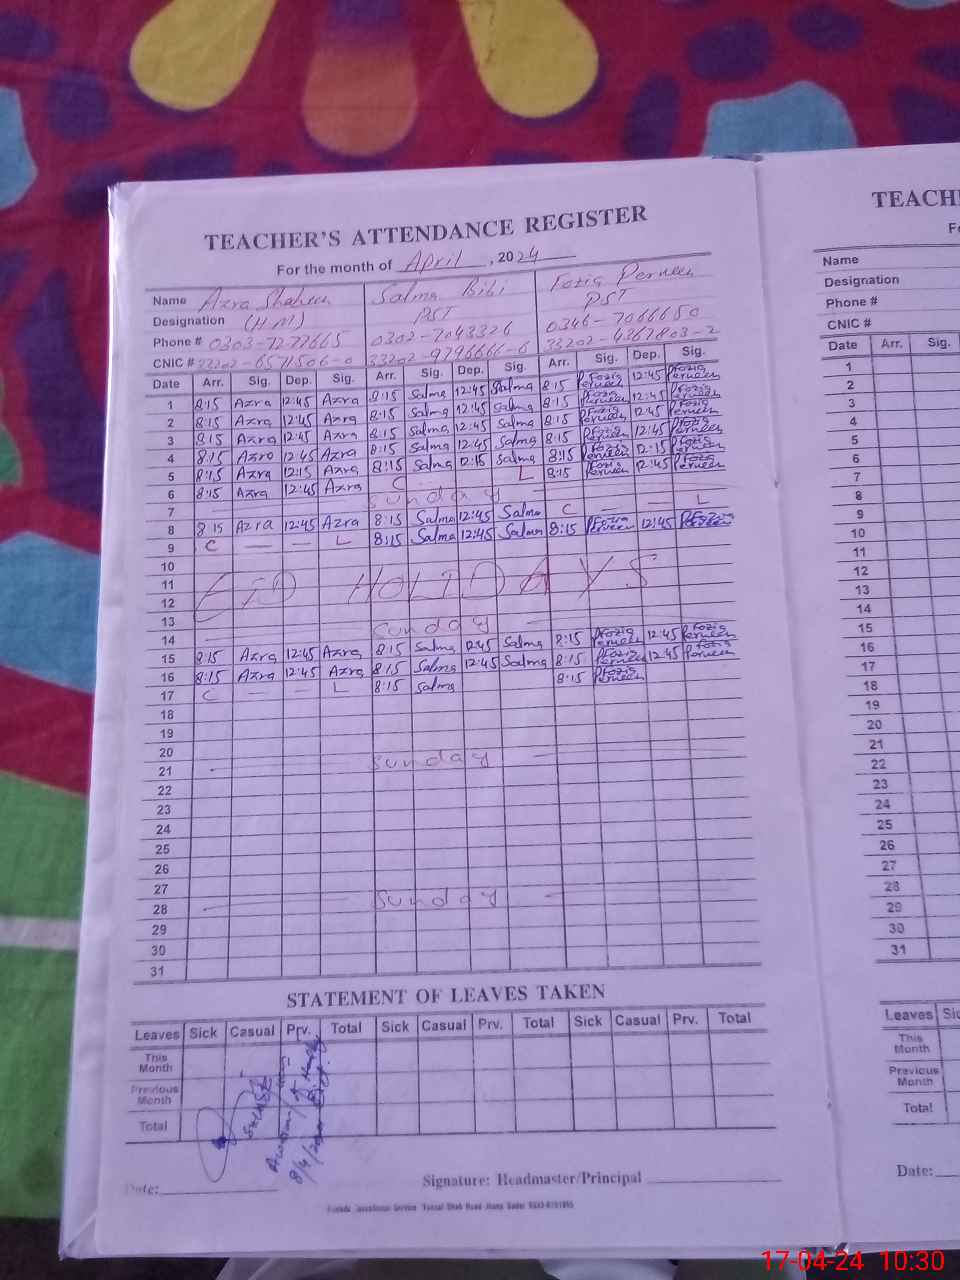 TEACHER'S ATTENDANCE REGISTER
For the month of April, 2024
Name Azra Shaheen Salma Bibi Fozia Perveen
Designation (HM) PST PST
Phone # 0303-7277665 0302-7043326 0346-7066650
CNIC # 33202-6571506-0 33202-9796666-6 33202-4367803-2
Date Arr. Sig. Dep. Sig. Arr. Sig. Dep. Sig. Arr. Sig. Dep. Sig.
1 8:15 Azra 12:45 Azra 8:15 Salma 12:45 Salma 8:15 Fozia Perveen 12:45 Fozia Perveen
2 8:15 Azra 12:45 Azra 8:15 Salma 12:45 Salma 8:15 Fozia Perveen 12:45 Fozia Perveen
3 8:15 Azra 12:45 Azra 8:15 Salma 12:45 Salma 8:15 Fozia Perveen 12:45 Fozia Perveen
4 8:15 Azra 12:45 Azra 8:15 Salma 12:45 Salma 8:15 Fozia Perveen 12:45 Fozia Perveen
5 8:15 Azra 12:15 Azra 8:15 Salma 12:15 Salma 8:15 Fozia Perveen 12:15 Fozia Perveen
6 8:15 Azra 12:45 Azra C L 8:15 Fozia Perveen 12:45 Fozia Perveen
7 Sunday
8 8:15 Azra 12:45 Azra 8:15 Salma 12:45 Salma C — — L
9 C — — L 8:15 Salma 12:45 Salma 8:15 Fozia Perveen 12:45 Fozia Perveen
10
11 EID HOLIDAYS
12
13
14 Sunday
15 8:15 Azra 12:45 Azra 8:15 Salma 12:45 Salma 8:15 Fozia Perveen 12:45 Fozia Perveen
16 8:15 Azra 12:45 Azra 8:15 Salma 12:45 Salma 8:15 Fozia Perveen 12:45 Fozia Perveen
17 C — — L 8:15 Salma 8:15 Fozia Perveen
18
19
20
21 Sunday
22
23
24
25
26
27
28 Sunday
29
30
31
STATEMENT OF LEAVES TAKEN
Leaves Sick Casual Prv. Total Sick Casual Prv. Total Sick Casual Prv. Total
This Month
Previous Month
Total
8/4/2024
Date:
Signature: Headmaster/Principal
TEACH
Name
Designation
Phone #
CNIC #
Date Arr. Sig.
1
2
3
4
5
6
7
8
9
10
11
12
13
14
15
16
17
18
19
20
21
22
23
24
25
26
27
28
29
30
31
Leaves
This Month
Previous Month
Total
Date:
17-04-24 10:30